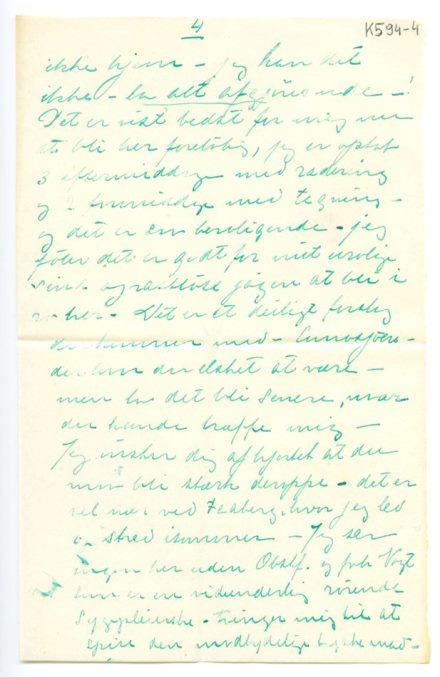 4
K594-4
ikke hjem – jeg kan det
ikke – la alt afgjörende –!
Det er vist bedst for mig nu
at bli her foreløbig, jeg er optat
3 eftermiddage med radering
og 2 formiddage med tegning –
og det er beroligende – jeg
föler det er godt for mit urolige
sind og rastlöse jagen at bli i
ro her – Det er et deilige forslag
du kommer med –
der kan du elsket at være –
men la det bli senere,
du kunde træffe mig –
Jeg ønsker dig af hjertet at du
må bli stærk deroppe – det er
vel nær ved Faaberg, hvor jeg led
og stred isommer – Jeg ser
ingen her uden Obstf. og frk Vogt
som er en vidunderlig rörende
Sygepleierske – tvinger mig til at
spise den modbydelige mad –